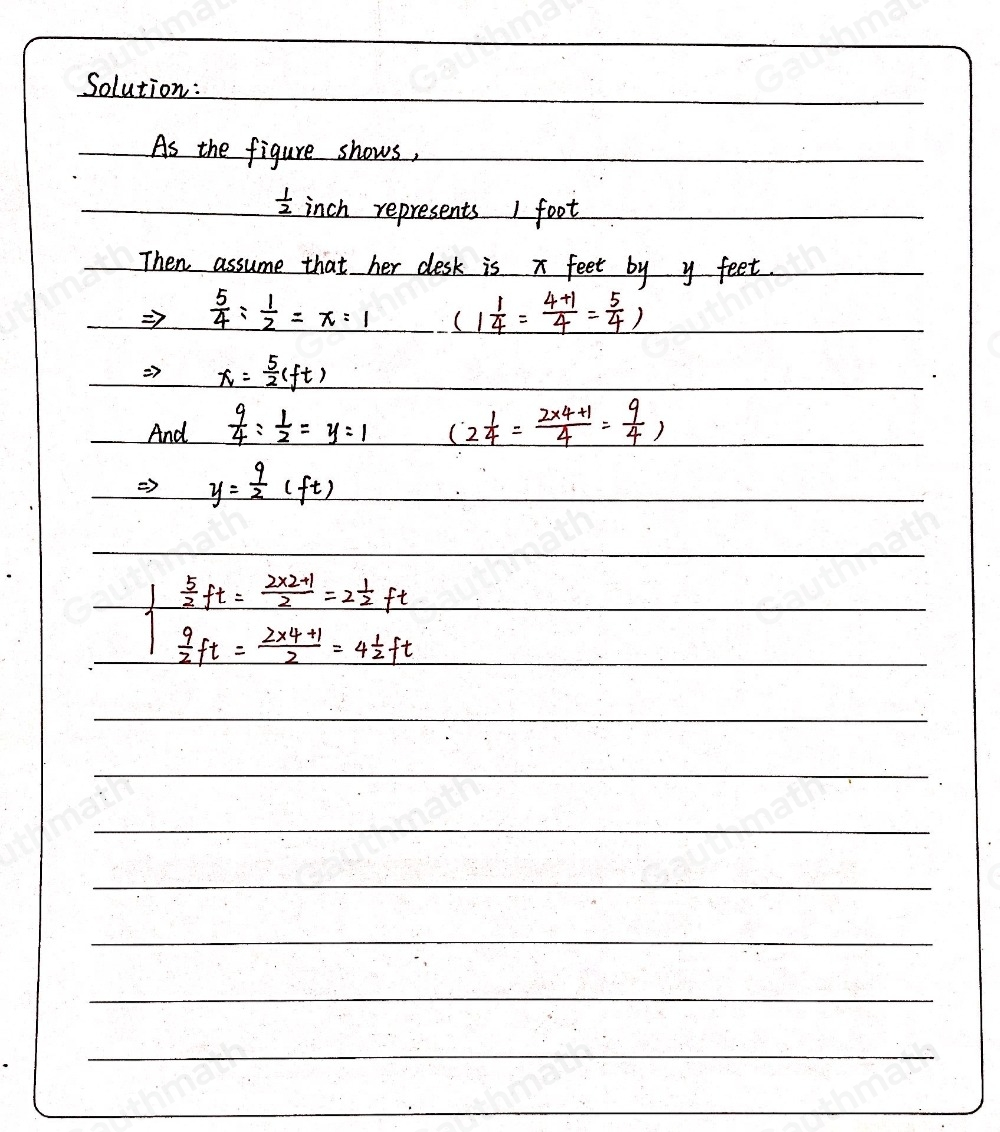 Solution:
As the figure shows,
1/2 inch represents 1 foot
Then assume that her desk is x feet by y feet.
⇒ 5/4 : 1/2 = x : 1 (1 1/4 = 4+1/4 = 5/4)
⇒ x = 5/2 (ft)
And 9/4 : 1/2 = y : 1 (2 1/4 = 2×4+1/4 = 9/4)
⇒ y = 9/2 (ft)
5/2 ft = 2×2+1/2 = 2 1/2 ft
9/2 ft = 2×4+1/2 = 4 1/2 ft
Gauthmath